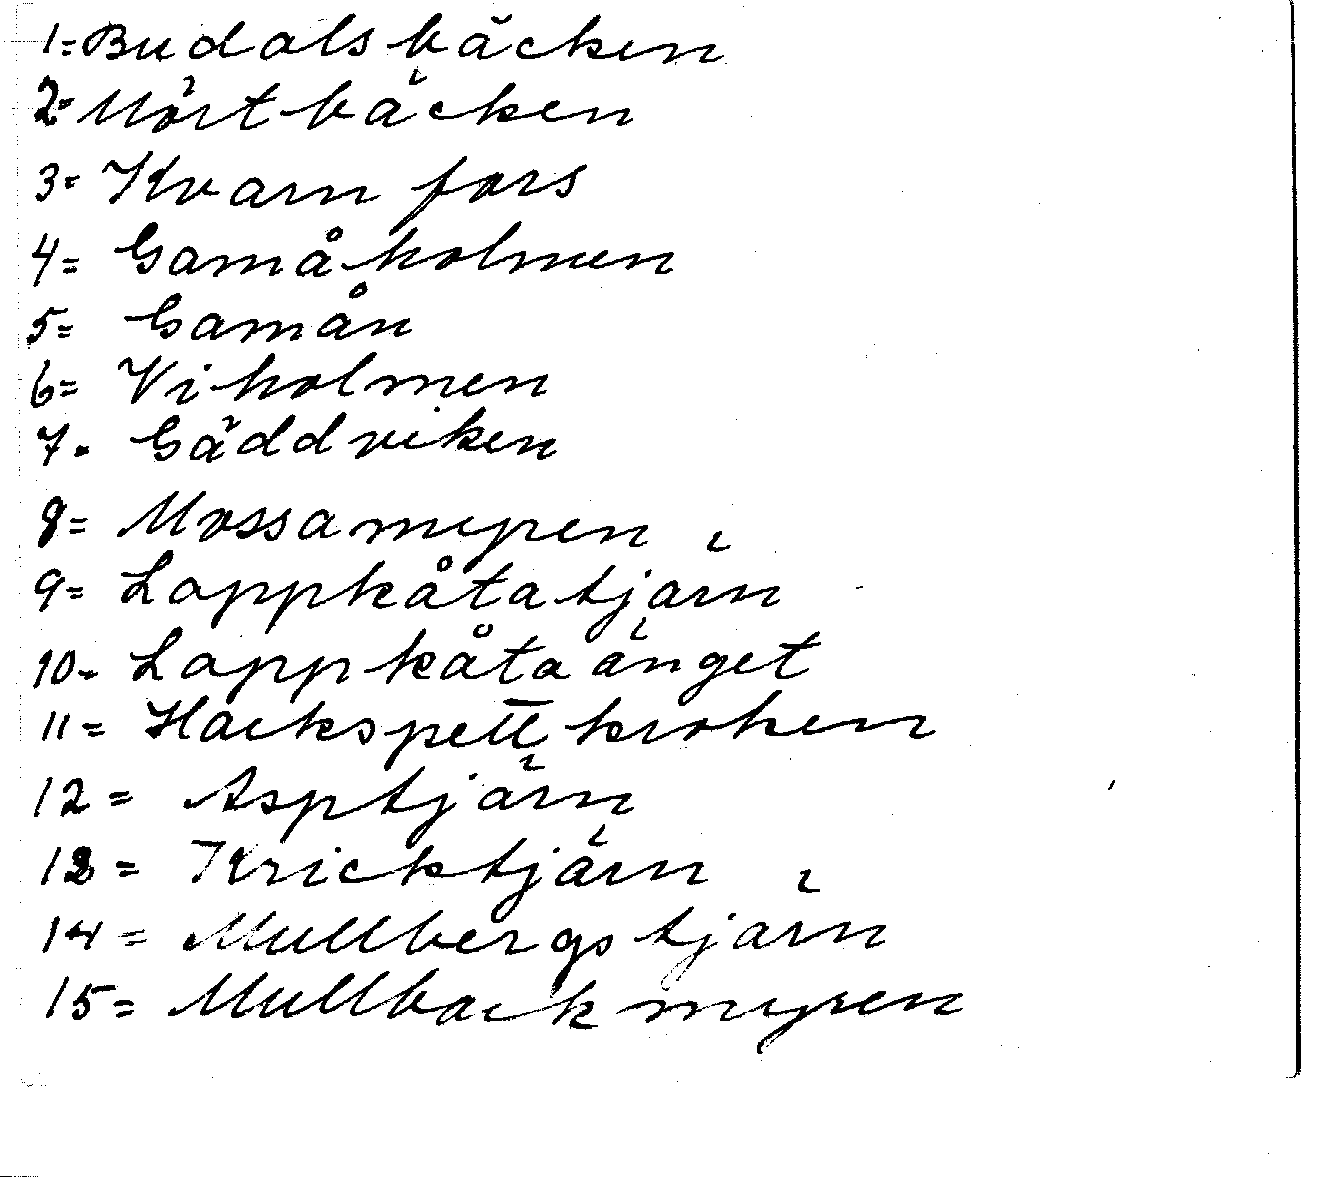 1=Budalsbäcken
2=Mörtbäcken
3= Kvarn fors
4= Gamåholmen
5= Gamån
6= Viholmen
7= Gäddviken
8= Mossamyren
9= Lappkåtatjärn
10= Lappkåtaänget
11= Hackspettkroken
12= Asptjärn
13= Kricktjärn
14= Mullbergstjärn
15= Mullback myren